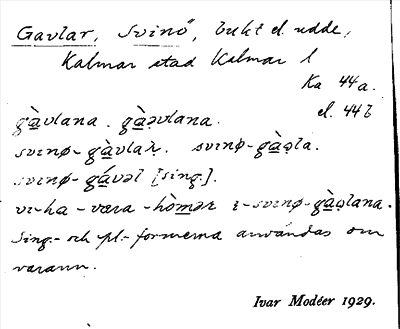 Gavlar, Svinö, bukt el. udde,
Kalmar stad Kalmar l
Ka 44a.
el. 44b
gàvlana. gàəvlana.
svinø-gàvlar. svinø-gàəla.
svinø-gávəl [sing.].
vi-ha-vara-hòmər i-svinø-gàəlana.
Sing.- och pl.-formerna användas om
varann.
Ivar Modéer 1929.